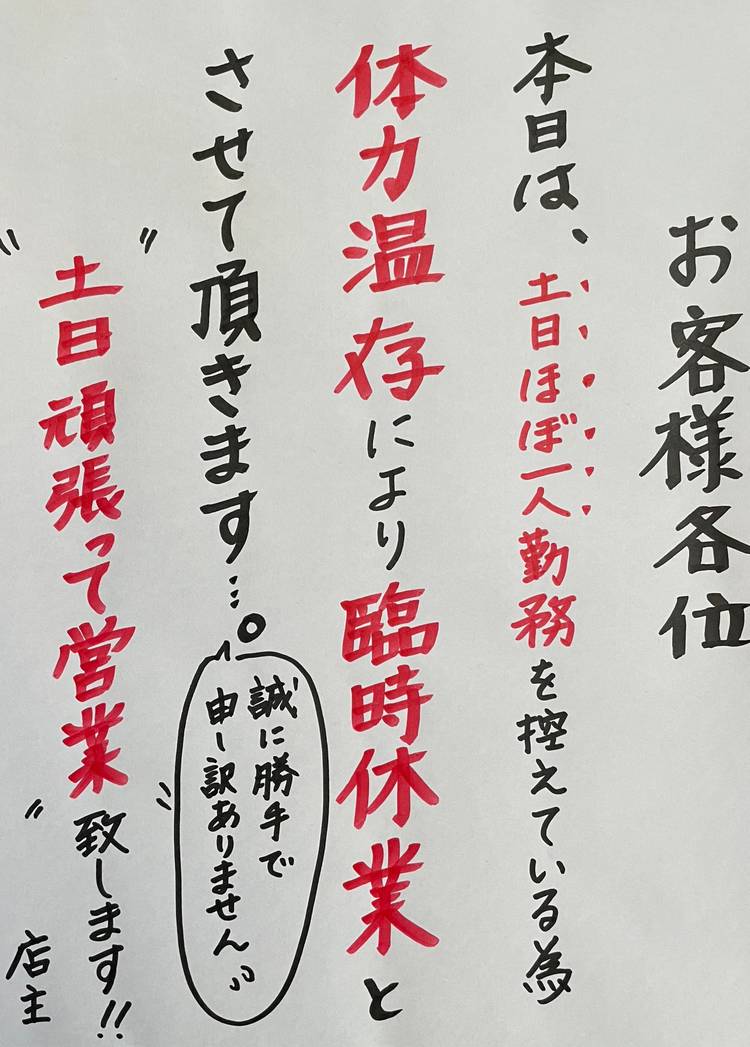 お客様各位
本日は、土日ほぼ一人勤務を控えている為
体力温存により臨時休業と
させて頂きます…。
誠に勝手で
申し訳ありません
土日頑張って営業致します!!
店主